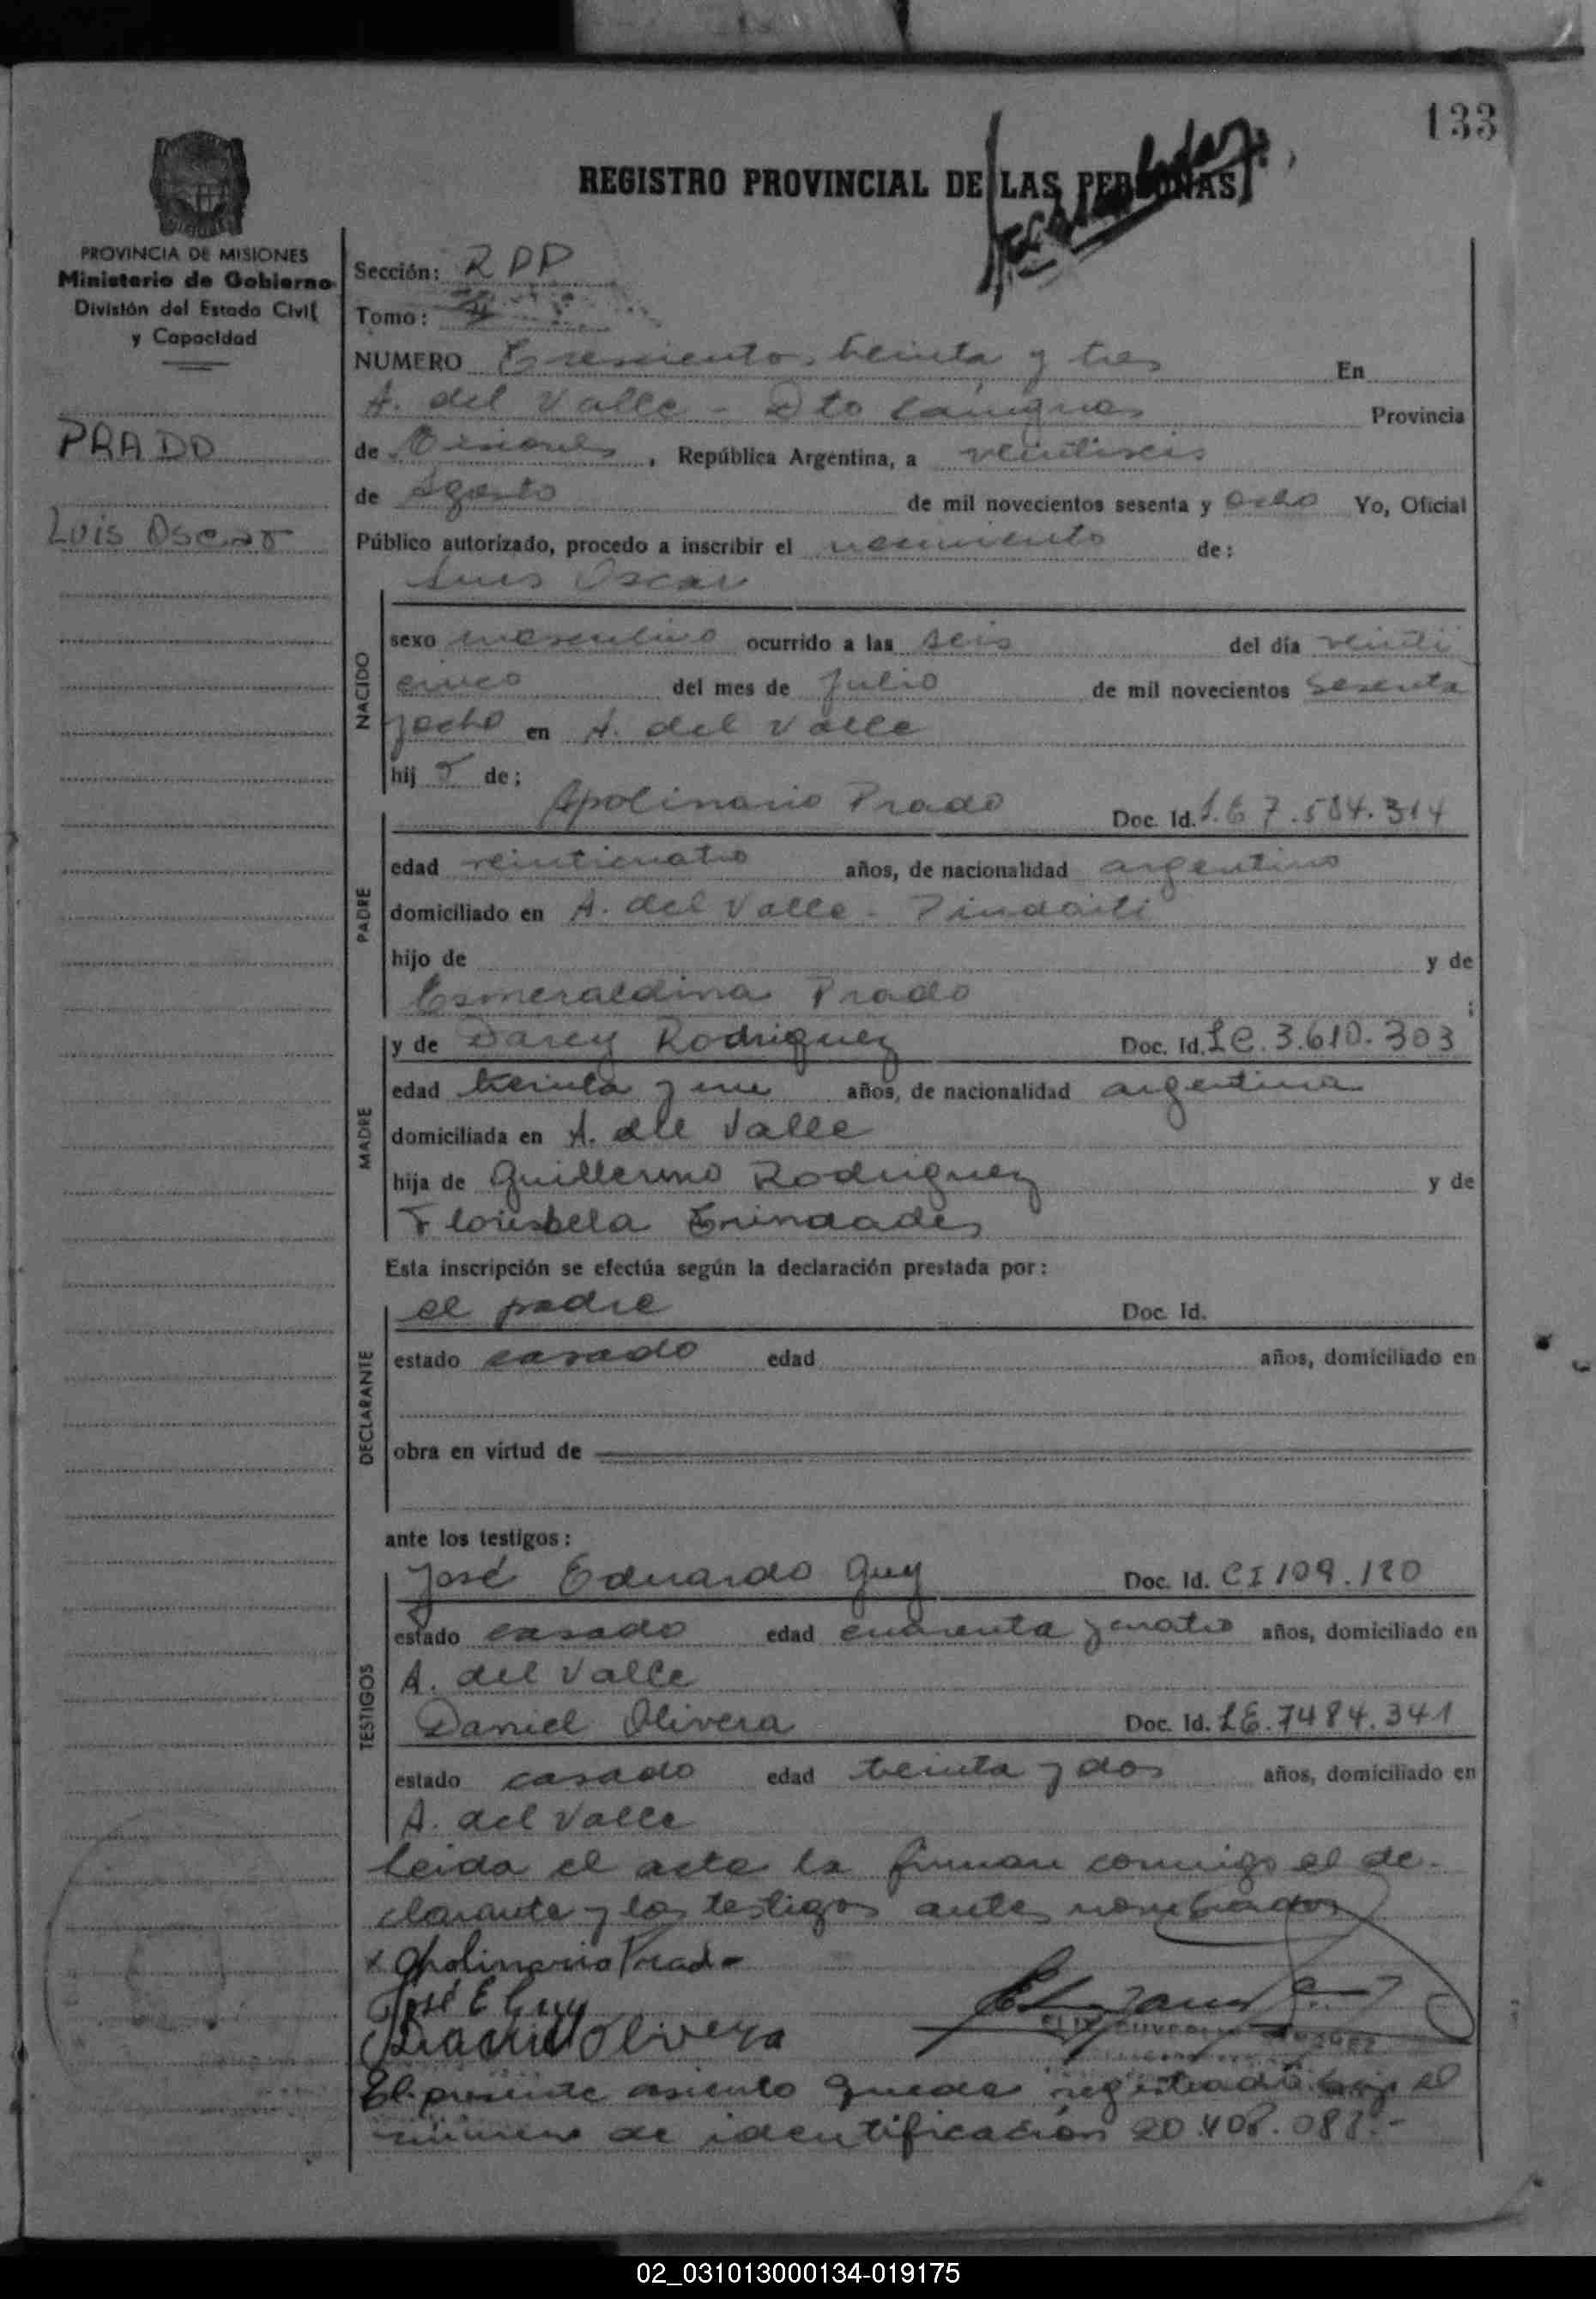 133
REGISTRO PROVINCIAL DE LAS PERSONAS
PROVINCIA DE MISIONES
Ministerio de Gobierno
División del Estado Civil
y Capacidad
PRADO
Luis Oscar
Sección: RPP
Tomo:
NUMERO Tresciento treinta y tres En
A. del Valle - Dto Cainguas Provincia
de Misiones, República Argentina, a veintiseis
de Agosto de mil novecientos sesenta y ocho Yo, Oficial
Público autorizado, procedo a inscribir el nacimiento de:
Luis Oscar
NACIDO
sexo masculino ocurrido a las seis del día veinti
cinco del mes de Julio de mil novecientos sesenta
yocho en A. del Valle
hij o de:
PADRE
Apolinario Prado Doc. Id. L.E 7.504.314
edad veinticuatro años, de nacionalidad argentino
domiciliado en A. del Valle - Pindaiti
hijo de y de
Esmeraldina Prado ;
MADRE
y de Darcy Rodriguez Doc. Id. LC. 3.610.303
edad treinta y un años, de nacionalidad argentina
domiciliada en A. del Valle
hija de Guillermo Rodriguez y de
Florisbela Trindades
Esta inscripción se efectúa según la declaración prestada por:
DECLARANTE
el padre Doc. Id.
estado casado edad años, domiciliado en
obra en virtud de
ante los testigos:
TESTIGOS
José Eduardo Guy Doc. Id. CI 109.120
estado casado edad cuarenta ycuatro años, domiciliado en
A. del Valle
Daniel Olivera Doc. Id. LE. 7484.341
estado casado edad treinta y dos años, domiciliado en
A. del Valle
Leida el acta la firman conmigo el de-
clarante y los testigos antes nombrados
x Apolinario Prado
José E Guy
Daniel Olivera
El presente asiento queda registrado bajo el
número de identificación 20.408.088.-
02_031013000134-019175